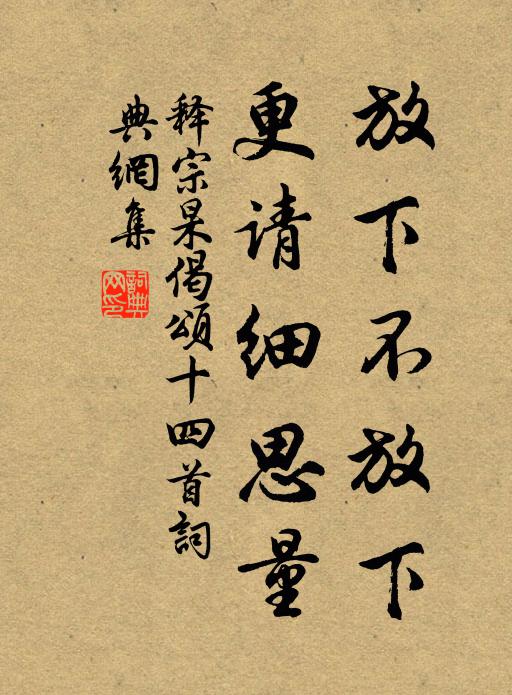 放下不放下
更请细思量
释宗杲偈颂十四首詞
典網集
詞典网印